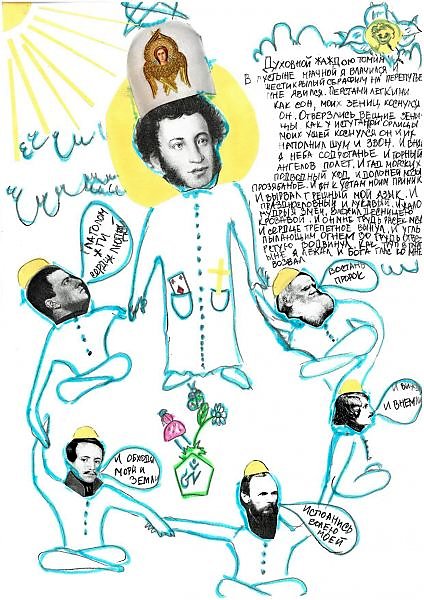 ДУХОВНОЙ ЖАЖДОЮ ТОМИМ
В ПУСТЫНЕ МРАЧНОЙ Я ВЛАЧИЛСЯ И
ШЕСТИКРЫЛЫЙ СЕРАФИМ НА ПЕРЕПУТЬЕ
МНЕ ЯВИЛСЯ. ПЕРСТАМИ ЛЕГКИМИ
КАК СОН, МОИХ ЗЕНИЦ КОСНУЛСЯ
ОН. ОТВЕРЗЛИСЬ ВЕЩИЕ ЗЕНИ-
ЦЫ КАК У ИСПУГАННОЙ ОРЛИЦЫ
МОИХ УШЕЙ КОСНУЛСЯ ОН И ИХ
НАПОЛНИЛ ШУМ И ЗВОН. И ВНЯЛ
Я НЕБА СОДРОГАНЬЕ И ГОРНИЙ
АНГЕЛОВ ПОЛЕТ. И ГАД МОРСКИХ
ПОДВОДНЫЙ ХОД, И ДОЛЬНЕЙ ЛОЗЫ
ПРОЗЯБАНИЕ. И ОН К УСТАМ МОИМ ПРИНИК
И ВЫРВАЛ ГРЕШНЫЙ МОЙ ЯЗЫК. И
ПРАЗДНОСЛОВНЫЙ И ЛУКАВЫЙ. И ЖАЛО
МУДРЫЯ ЗМЕИ, ВЛОЖИЛ ДЕСНИЦЕЮ
КРОВАВОЙ. И ОН МНЕ ГРУДЬ
И СЕРДЦЕ ТРЕПЕТНОЕ ВЫНУЛ. И УГЛЬ
ПЫЛАЮЩИМ ОГНЕМ ВО ГРУДЬ ОТВЕ
РСТУЮ ВОДВИНУЛ. КАК ТРУП В ПУСТ
ЫНЕ Я ЛЕЖАЛ И БОГА ГЛАС КО МНЕ
ВОЗВАЛ
ГЛАГОЛОМ
ЖГИ
СЕРДЦА ЛЮДЕЙ
ВОССТАНЬ
ПРОРОК
И ВИЖДЬ
И ВНЕМЛИ
И ОБХОДЯ
МОРЯ И
ЗЕМЛИ
ИСПОЛНИСЬ
ВОЛЕЮ
МОЕЙ